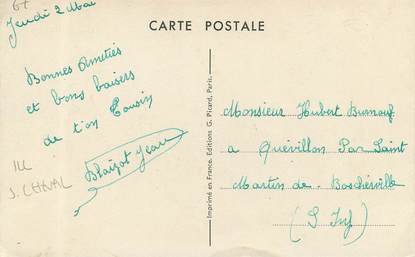 CARTE POSTALE
61
Jeudi 2 Mai
Bonnes Amitiés
et bons baisers
de ton Cousin
Blaizot Jean
J. CHEVAL
Imprimé en France. Editions G. Picard, Paris.
Monsieur Hubert Burnouf
a Quévillon Par Saint
Martin de Boscherville
(S Inf)